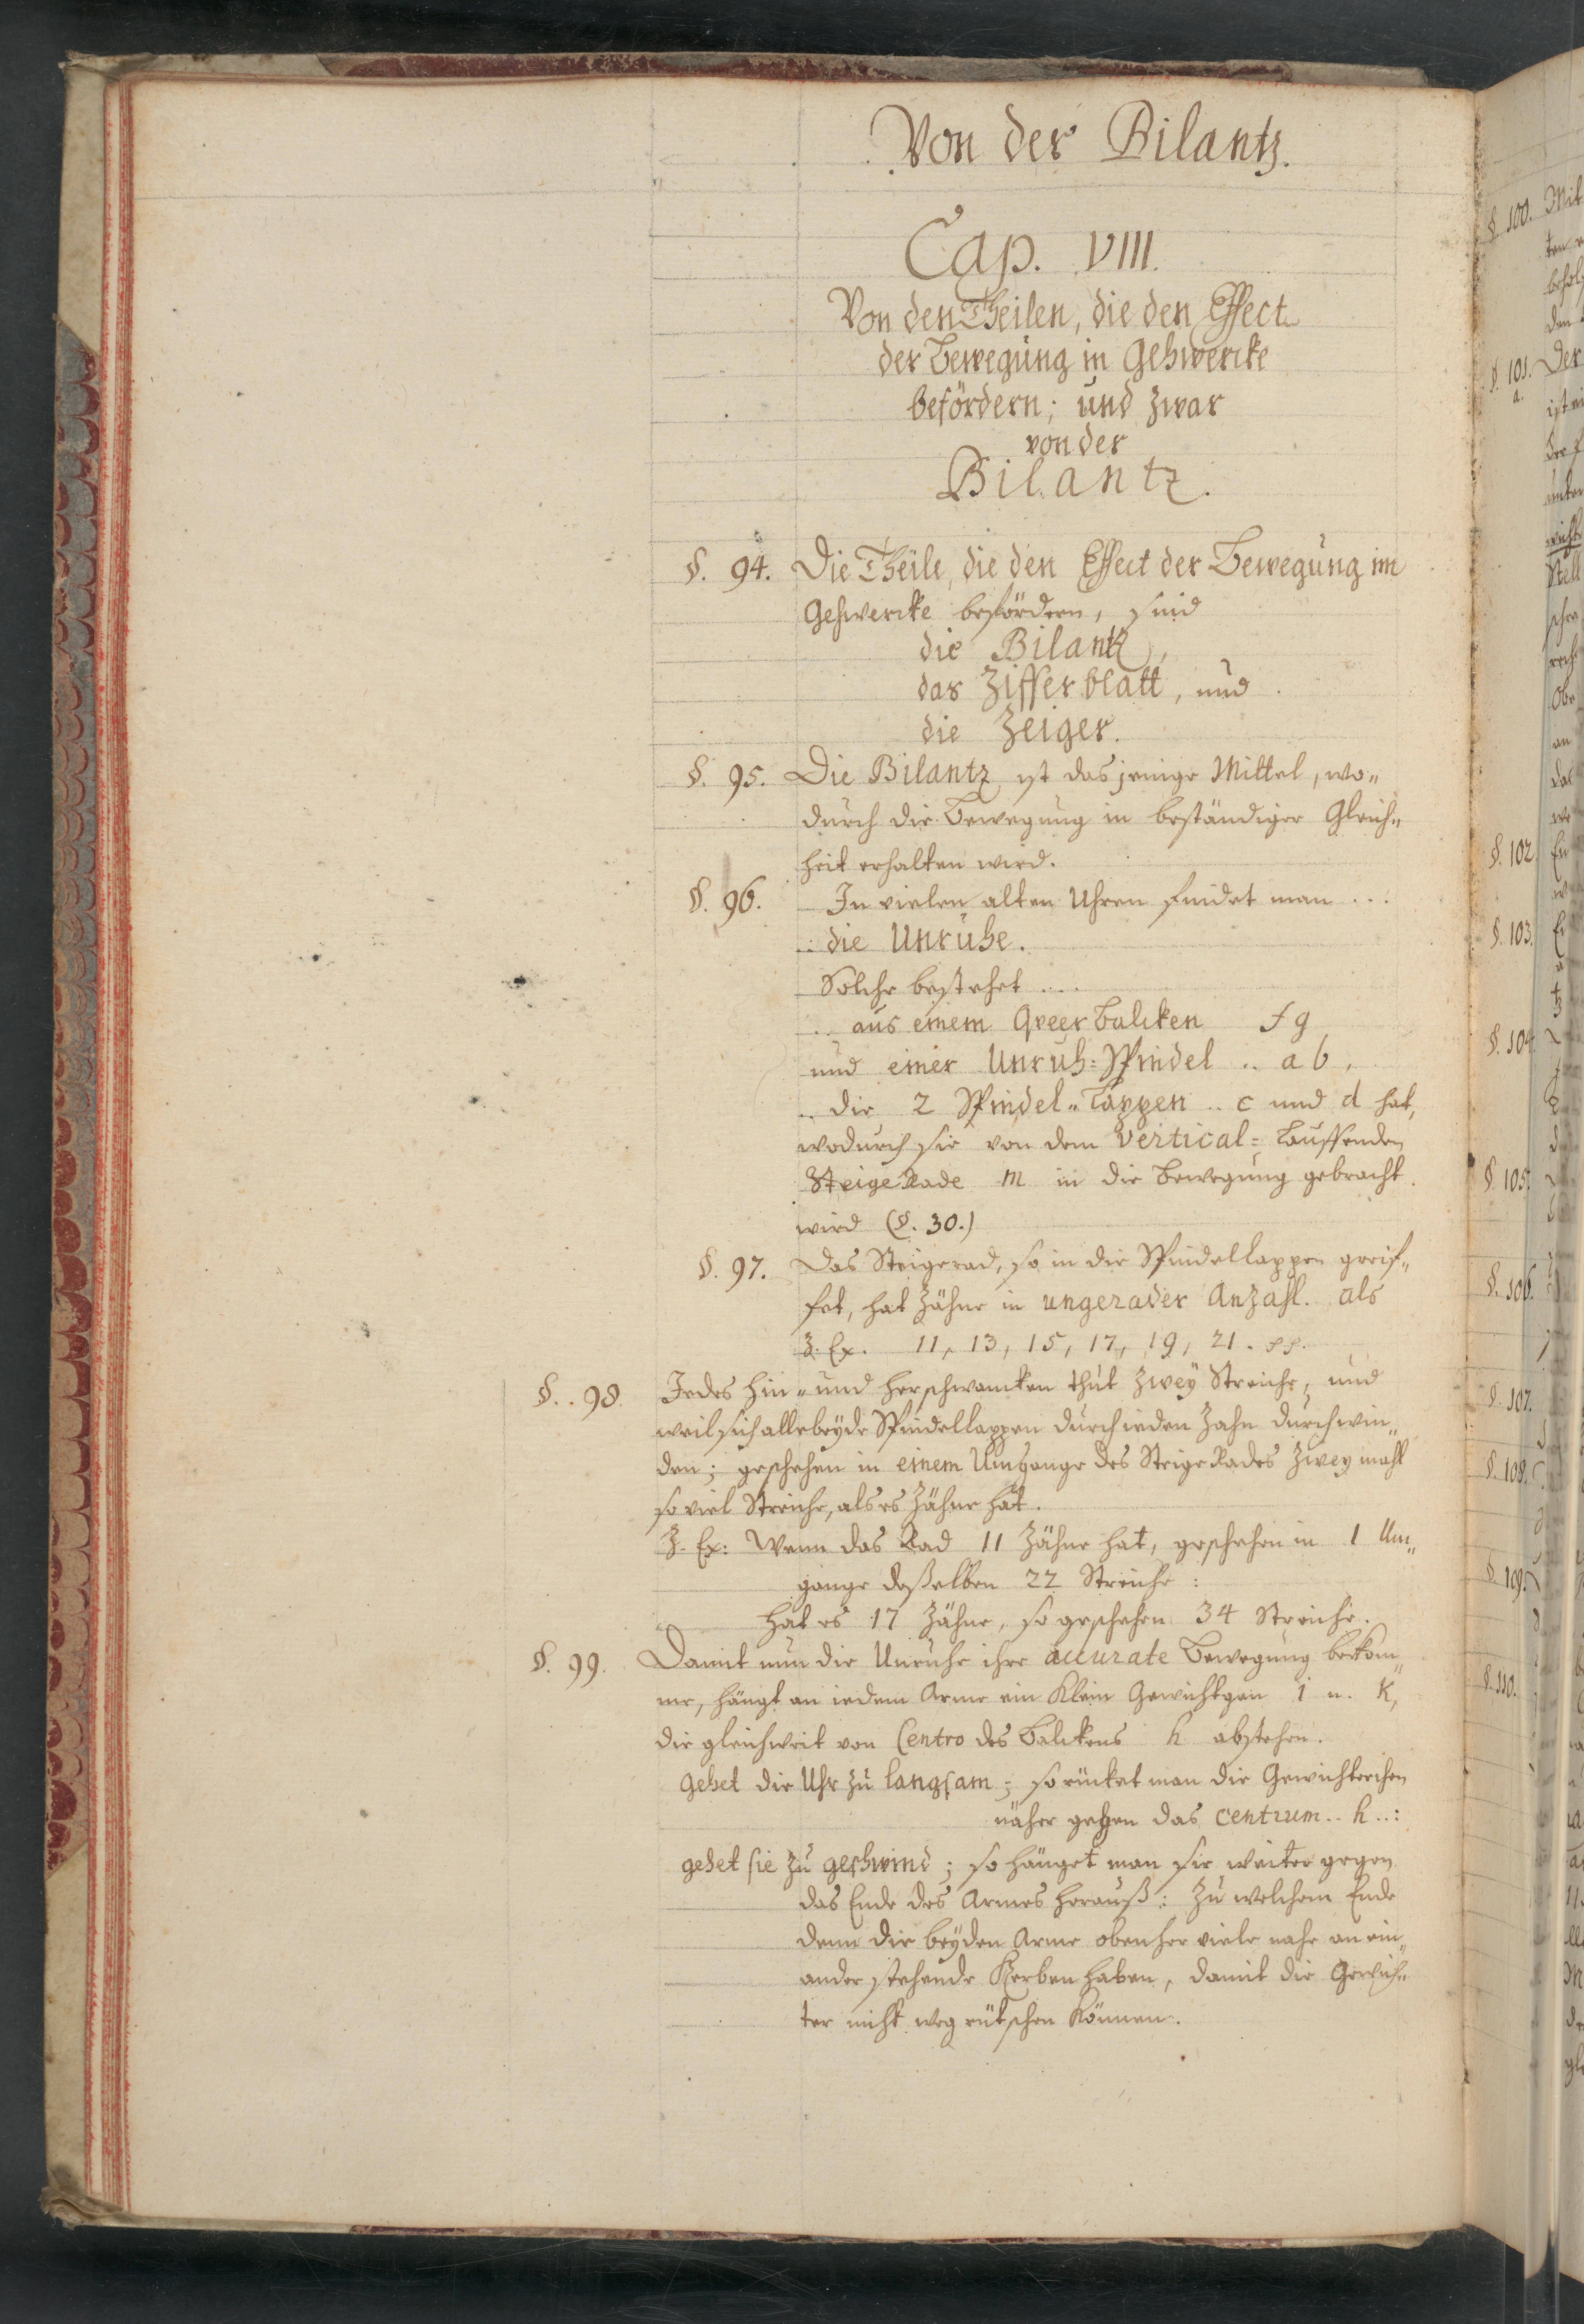 Von der Bilantz.
Cap. VIII.
Von den Theilen, die den Effect
der Bewegung in Gehwercke
befördern; und zwar
von der
Bilantz.
§. 94. Die Theile, die den Effect der Bewegung im
Gehwercke befördern, sind
die Bilantz,
das Zifferblatt, und
die Zeiger.
§. 95. Die Bilantz ist dasjenige Mittel, wo„
durch die Bewegung in beständiger Gleich„
heit erhalten wird.
§. 96. In vielen alten Uhren findet man ...
.. die Unruhe.
Solche bestehet ...
.. aus einem Qveer Balcken f g
und einer Unruh=Spindel .. a b,
.. die 2 Spindel„Lappen .. c und d hat,
wodurch sie von dem Vertical= Lauffenden
SteigeRade m in die Bewegung gebracht
wird (§. 30.)
§. 97. Das Steigerad, so in die Spindellappen greif„
fet, hat Zähne in ungerader Anzahl. als
Z. Ex. 11, 13, 15, 17, 19, 21. pp.
§. 98. Jedes hin„und herschwancken thut zwey Streiche, und
weil sich alle beyde Spindellappen durch ieden Zahn durchwin„
den; geschehen in einem Umgange des SteigeRades zweymahl
so viel Streiche, als es Zähne hat.
Z. Ex: Wenn das Rad 11 Zähne hat, geschehen in 1 Um„
gange deßelben 22 Streiche:
hat es 17 Zähne, so geschehen 34 Streiche.
§. 99. Damit nun die Unruhe ihre accurate Bewegung bekom„
me, hängt an iedem Arme ein klein Gewichtgen i u. k,
die gleichweit von Centro des Balckens h abstehen.
gehet die Uhr zu langsam; so rücket man die Gewichterchen
näher gegen das Centrum .. h ..:
gehet sie zu geschwind; so hänget man sie weiter gegen
das Ende des Armes herauß: zu welchem Ende
denn die beyden Arme obenher viele nahe an ein„
ander stehende Kerben haben, damit die Gewich„
ter nicht weg rütschen können.
§. 100. Mit
§. 101. Der
a.
§. 102.
§. 103.
§. 104.
§. 105.
§. 106.
§. 107.
§. 108.
§. 109.
§. 110.